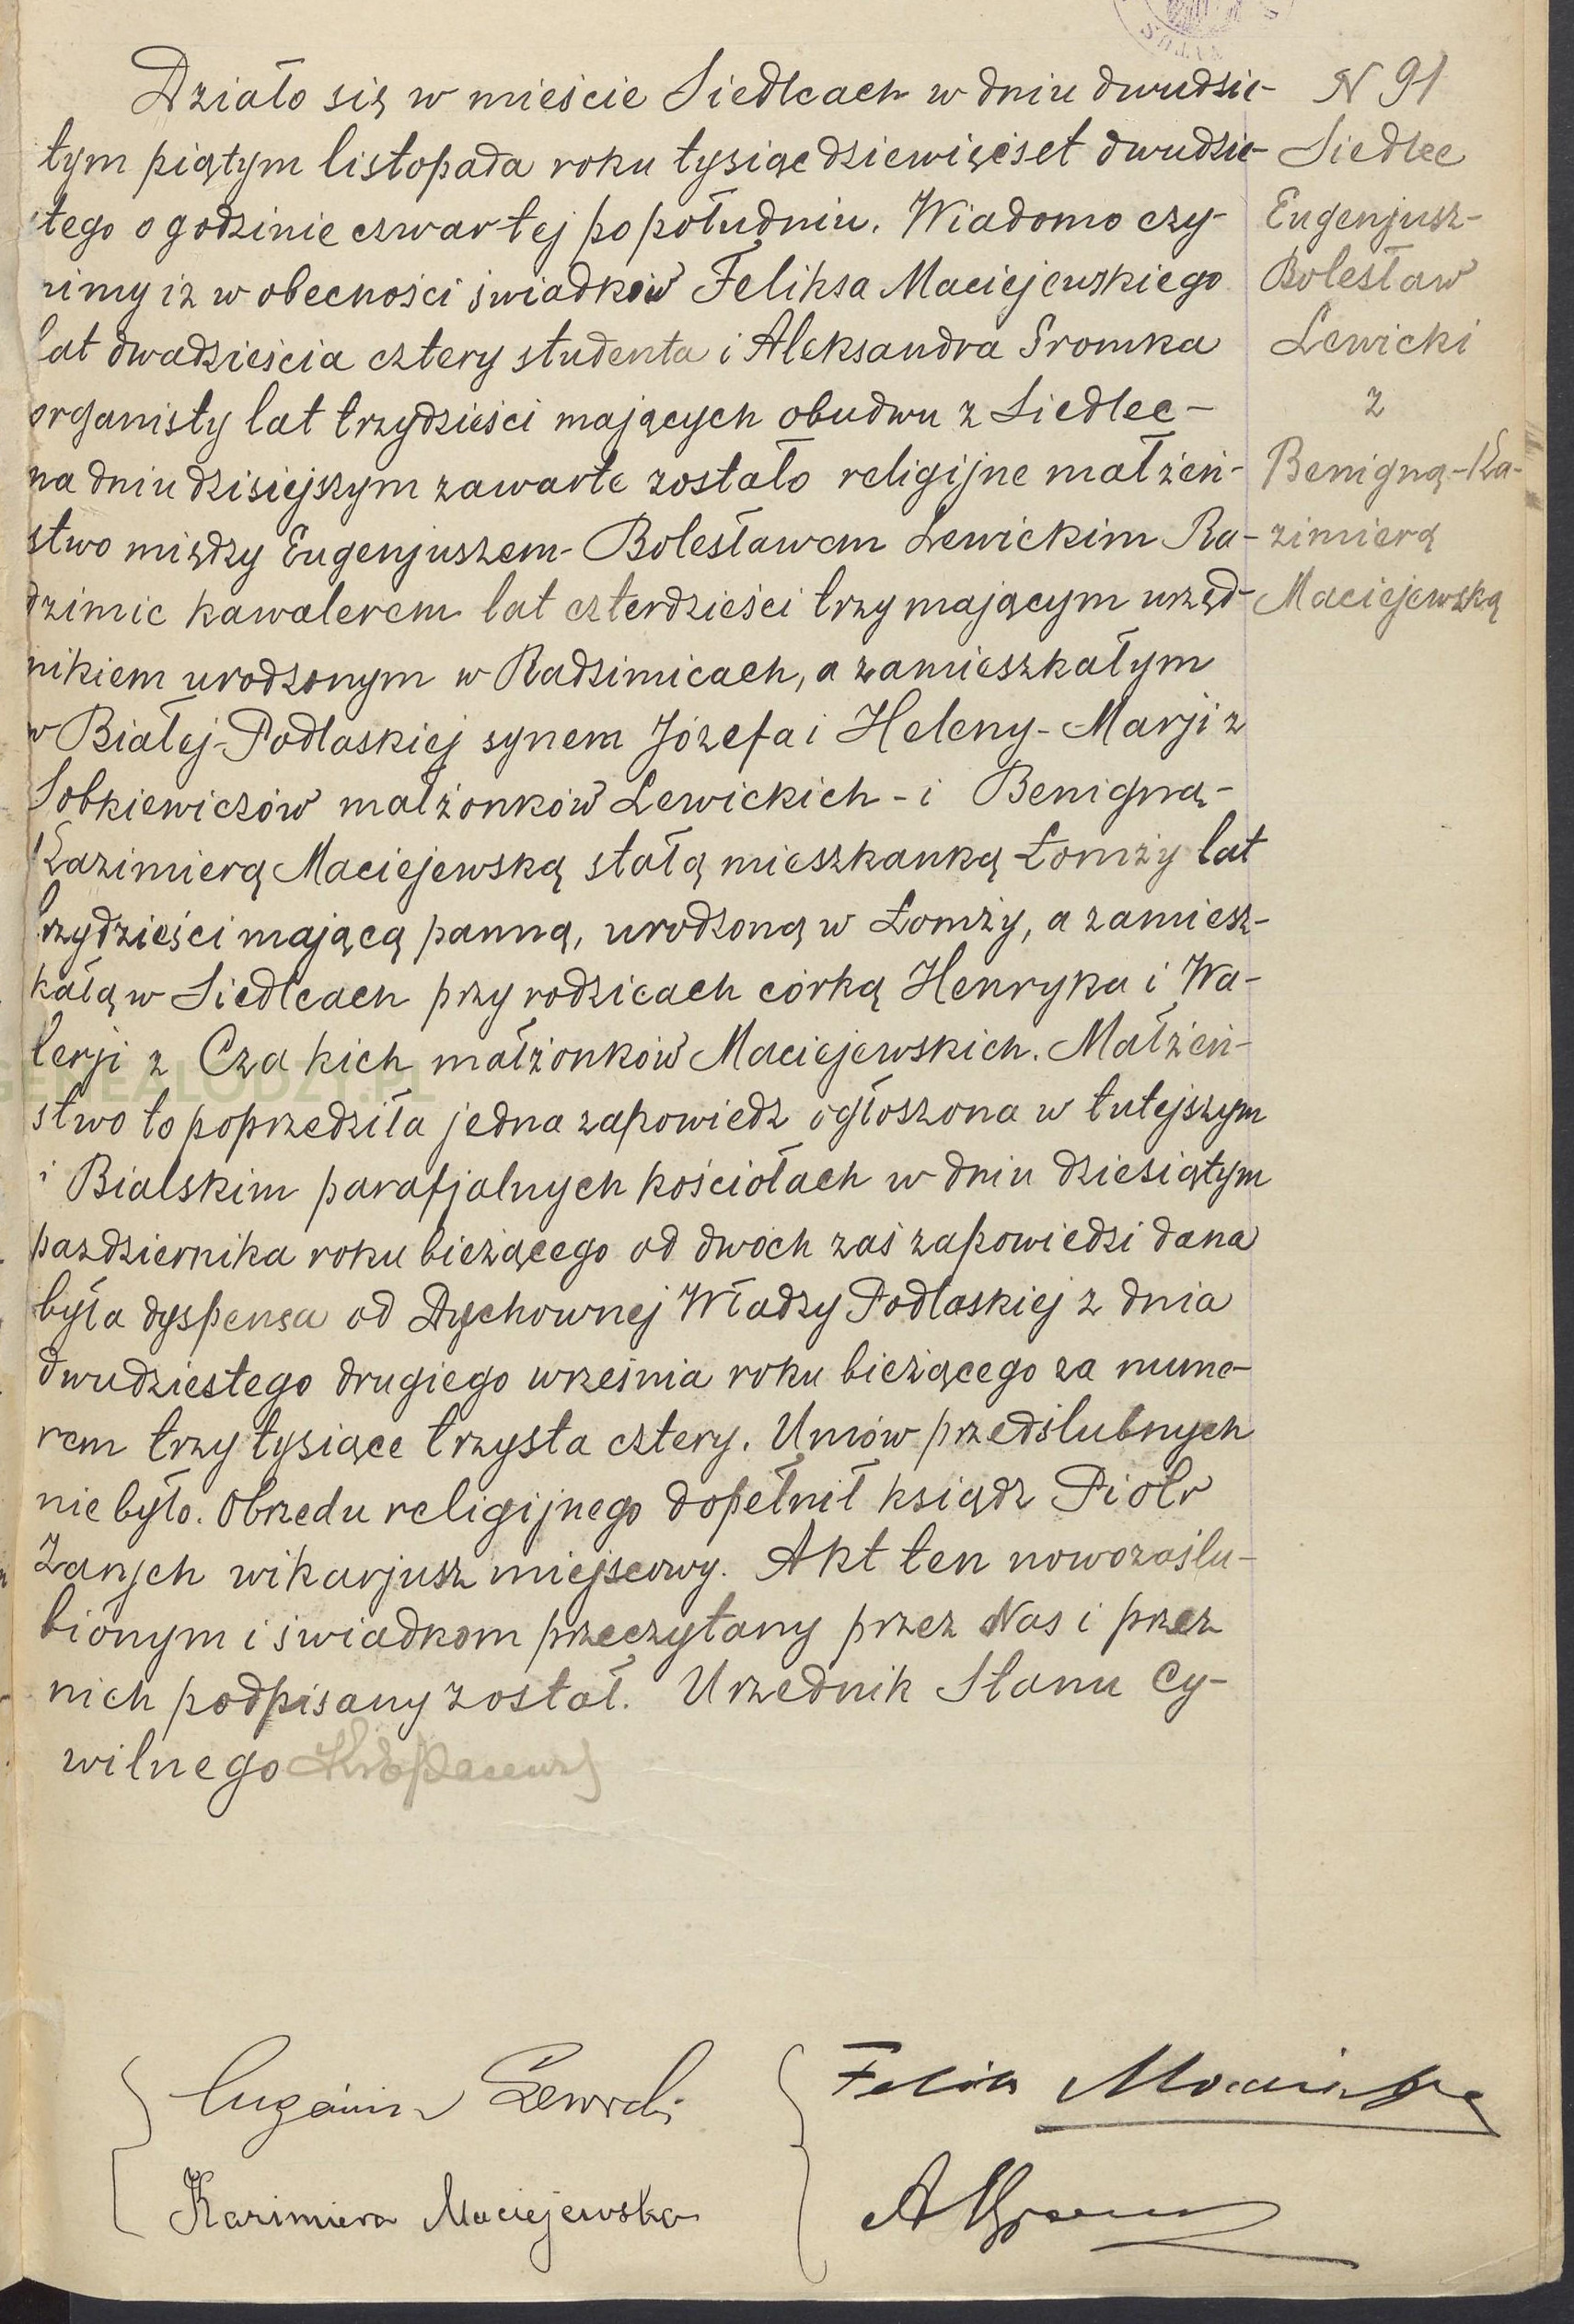 Działo się w mieście Siedlcach w dniu dwudzie-
tym piątym listopada roku tysiąc dziewięćset dwudzie-
stego o godzinie czwartej po południu. Wiadomo czy-
nimy iż w obecności świadków Feliksa Maciejewskiego
lat dwadzieścia cztery studenta i Aleksandra Sromka
organisty lat trzydzieści mających obudwu z Siedlec-
na dniu dzisiejszym zawarte zostało religijne małżeń-
stwo między Eugenjuszem-Bolesławem Lewickim Ra-
dzimic kawalerem lat czterdzieści trzy mającym urzęd-
nikiem urodzonym w Radzimicach, a zamieszkałym
w Białej-Podlaskiej synem Józefa i Heleny-Marji z
Sobkiewiczów małżonków Lewickich - i Benigną-
Kazimierą Maciejewską stałą mieszkanką Łomży lat
trzydzieści mającą panną, urodzoną w Łomży, a zamiesz-
kałą w Siedlcach przy rodzicach córką Henryka i Wa-
lerji z Czakich małżonków Maciejewskich. Małżeń-
stwo to poprzedziła jedna zapowiedz ogłoszona w tutejszym
i Bialskim parafjalnych kościołach w dniu dziesiątym
pazdziernika roku bieżącego od dwóch zaś zapowiedzi dana
była dyspensa od Duchownej Władzy Podlaskiej z dnia
dwudziestego drugiego września roku bieżącego za nume-
rem trzy tysiące trzysta cztery. Umów przedślubnych
nie było. Obrzedu religijnego dopełnił ksiądz Piotr
Zanych wikarjusz miejscowy. Akt ten nowozaślu-
bionym i świadkom przeczytany przez Nas i przez
nich podpisany został. Urzednik Stanu Cy-
wilnego
N 91
Siedlce
Eugenjusz-
Bolesław
Lewicki
z
Benigną-Ka-
zimierą
Maciejewską
GENEALODZY.PL
Lewicki
Kazimiera Maciejewska
Feliks